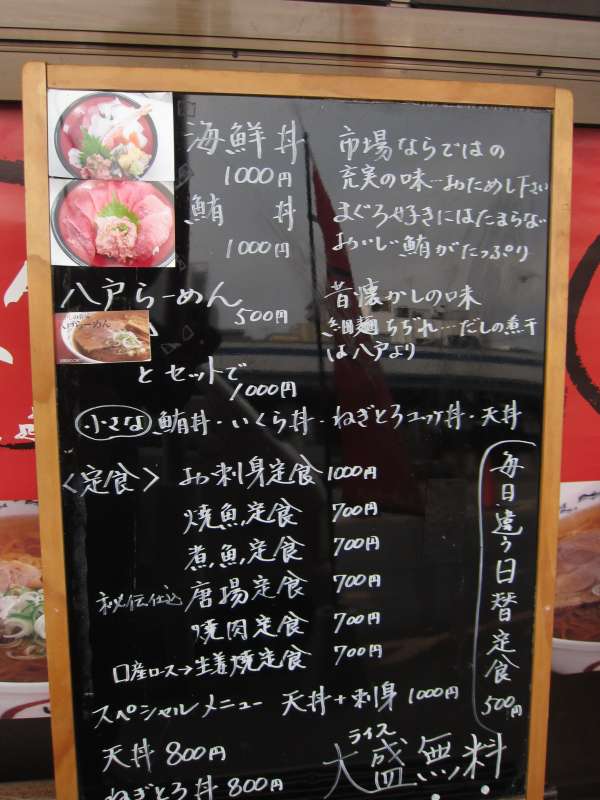 海鮮丼 市場ならではの
1000円 充実の味…おためし下さい
鮪丼 まぐろ好きにはたまらな
1000円 おいしい鮪がたっぷり
八戸らーめん 昔懐かしの味
500円 細麺ちぢれ…だしの煮干
は八戸より
とセットで
1000円
小さな 鮪丼・いくら丼・ねぎとろユッケ丼・天丼
<定食> お刺身定食 1000円
焼魚定食 700円
煮魚定食 700円
秘伝仕込 唐揚定食 700円
焼肉定食 700円
口産ロース→生姜焼定食 700円
毎日違う日替定食 500円
スペシャルメニュー 天丼+刺身 1000円
天丼 800円
ねぎとろ丼 800円
ライス
大盛無料